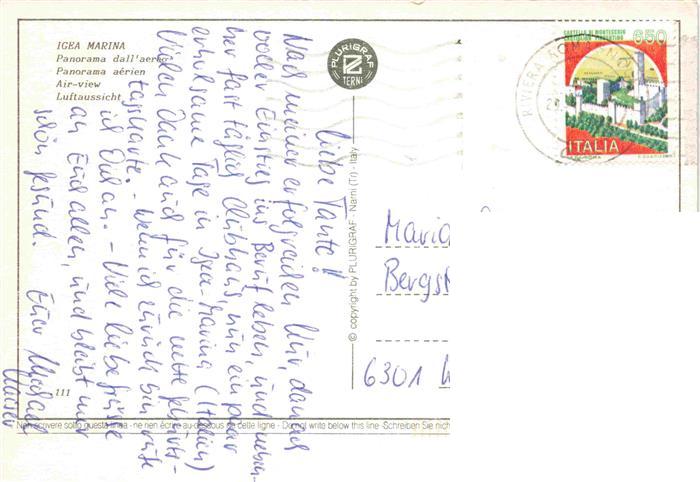 IGEA MARINA
Panorama dall'aereo
Panorama aérien
Air-view
Luftaussicht
PLURIGRAF
TERNI
CASTELLO DI MONTECCHIO
CASTIGLION FIORENTINO
650
ITALIA
RIVIERA ROMAGNOLA
Liebe Tante!
Nach meiner erfolgreichen Kur, danach
voller Einstieg ins Berufsleben, und neben-
her fast täglich Clubhaus, nun ein paar
erholsame Tage in Igea-Marina (Italien)
Vielen Dank auch für die nette Geburts-
tagskarte. - Wenn ich zurück bin rufe
ich Dich an. - Viele liebe Grüße
an Euch allen, und bleibt mir
schön gesund.
Euer Michael
© copyright by PLURIGRAF - Narni (Tr) - Italy
Maria
Bergst
6301
111
Non scrivere sotto questa linea - ne rien écrire au-dessous de cette ligne - Do not write below this line - Schreiben Sie nich